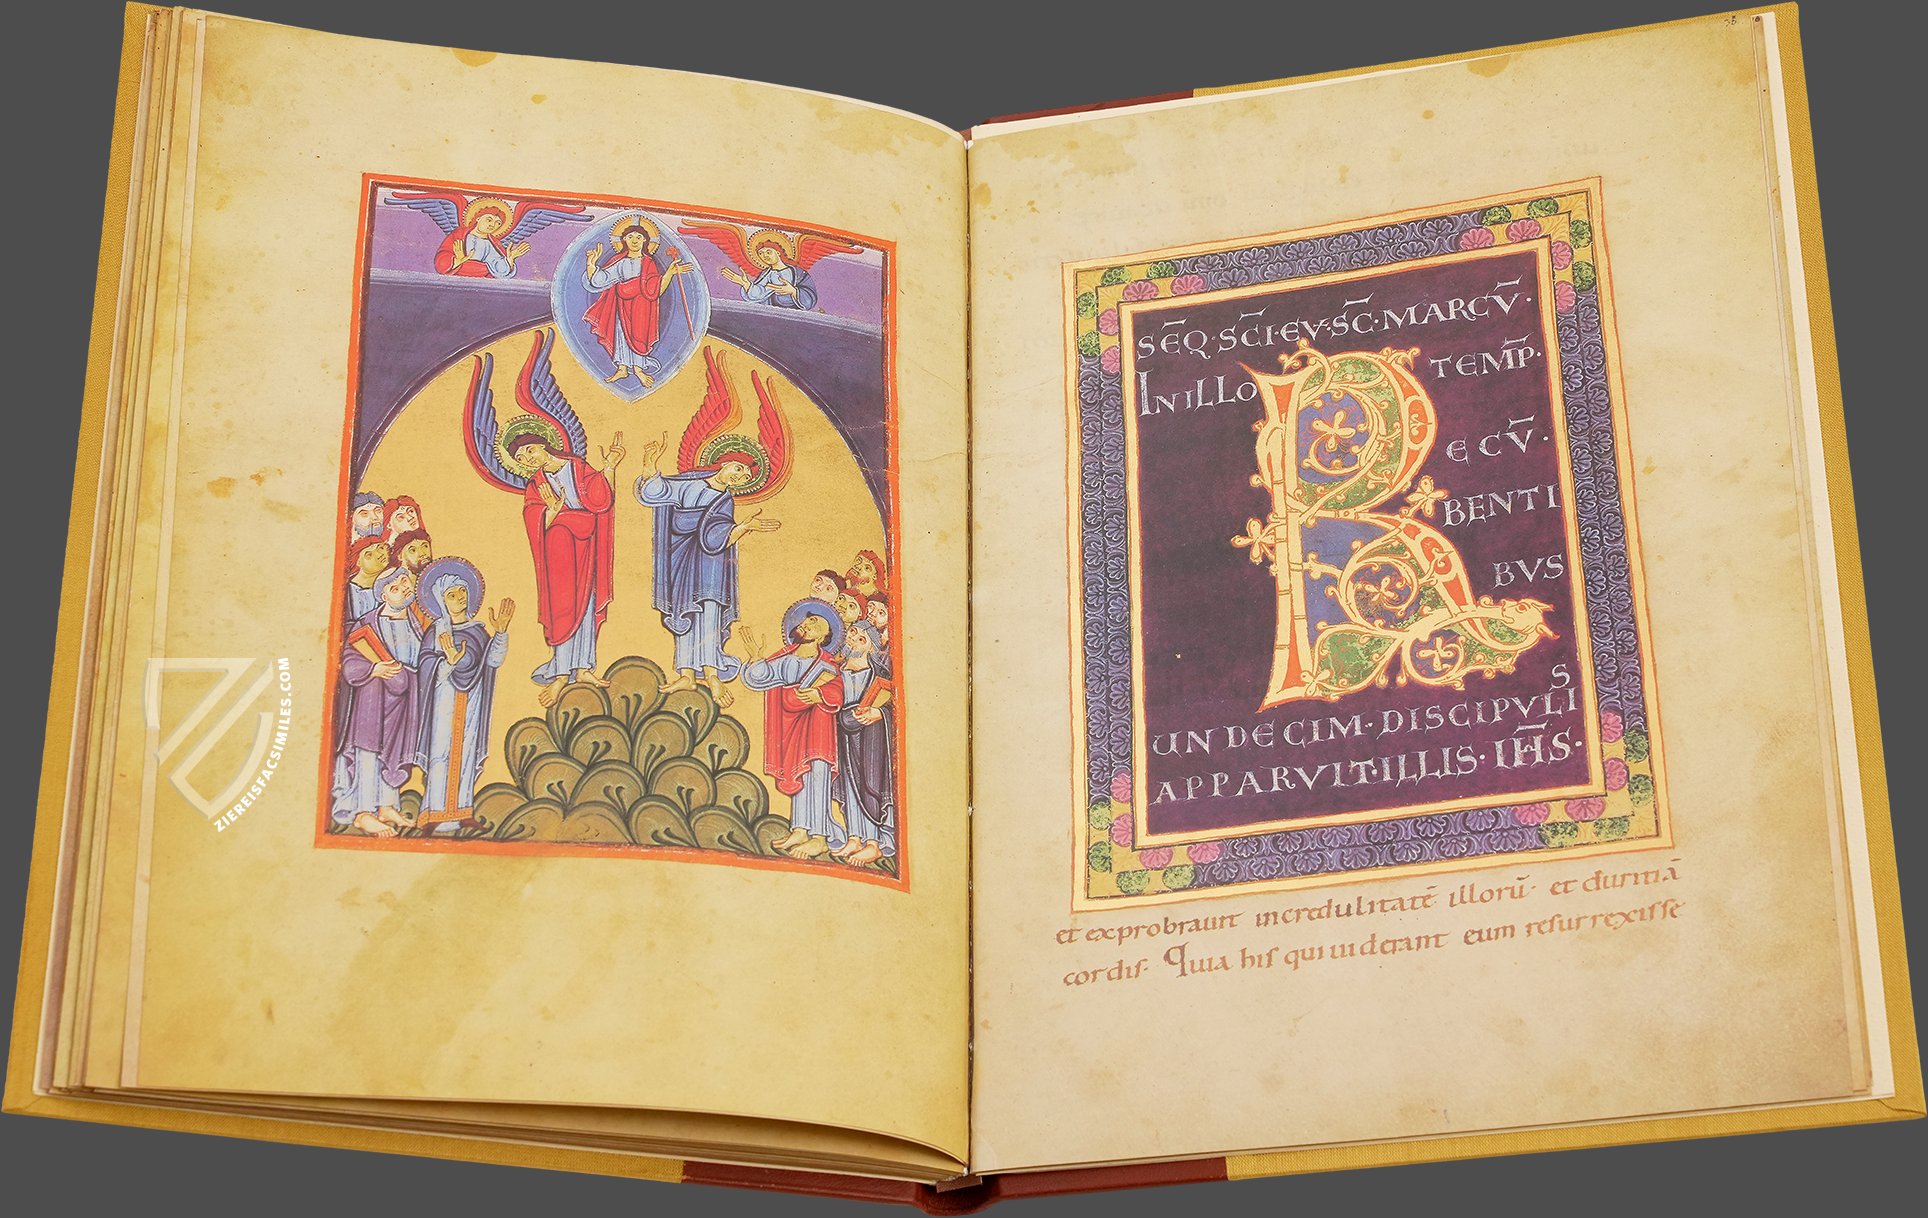 ZIEREISFACSIMILES.COM
SEQ̄·SC̄I·EV·SC̄·MARCV̄·
IN ILLO TEMP̄·
RECV̄·
BENTI
BVS
UNDECIM·DISCIPVLIS
APPARVIT·ILLIS·IH̄S·
et exprobrauit incredulitatē illorū· et duritiā
cordis· Quia his qui uiderant eum resurrexisse